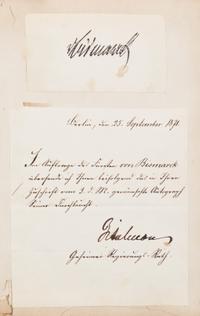 Bismarck
Berlin, den 25. September 1871.
Im Auftrage des Fürsten von Bismarck
übersende ich Ihnen beifolgend das in Ihrer
Zuschrift vom 3. d. M. gewünschte Autograph
Seiner Durchlaucht.
Geheimer Regierungs-Rath.